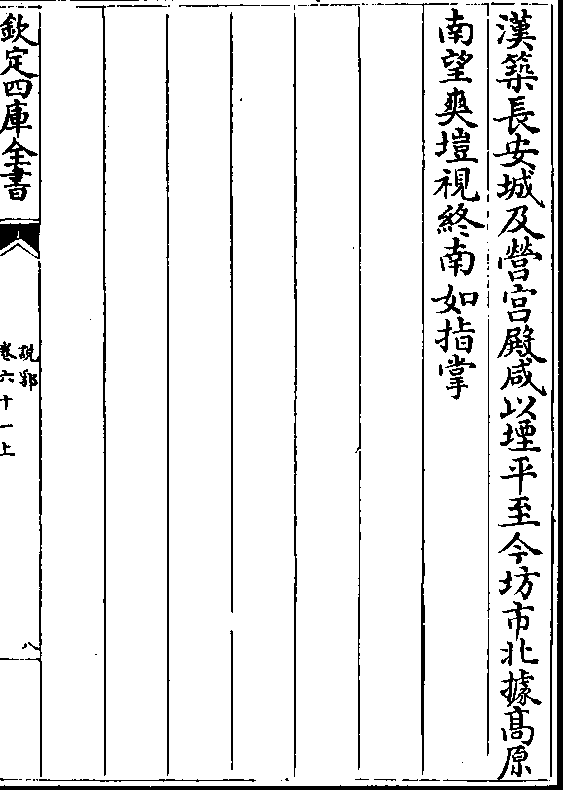 漢築長安城及營宫殿咸以堙平至今坊市北據髙原
南望爽塏視終南如指掌
欽定四庫全書
説郛
卷六十一上
八